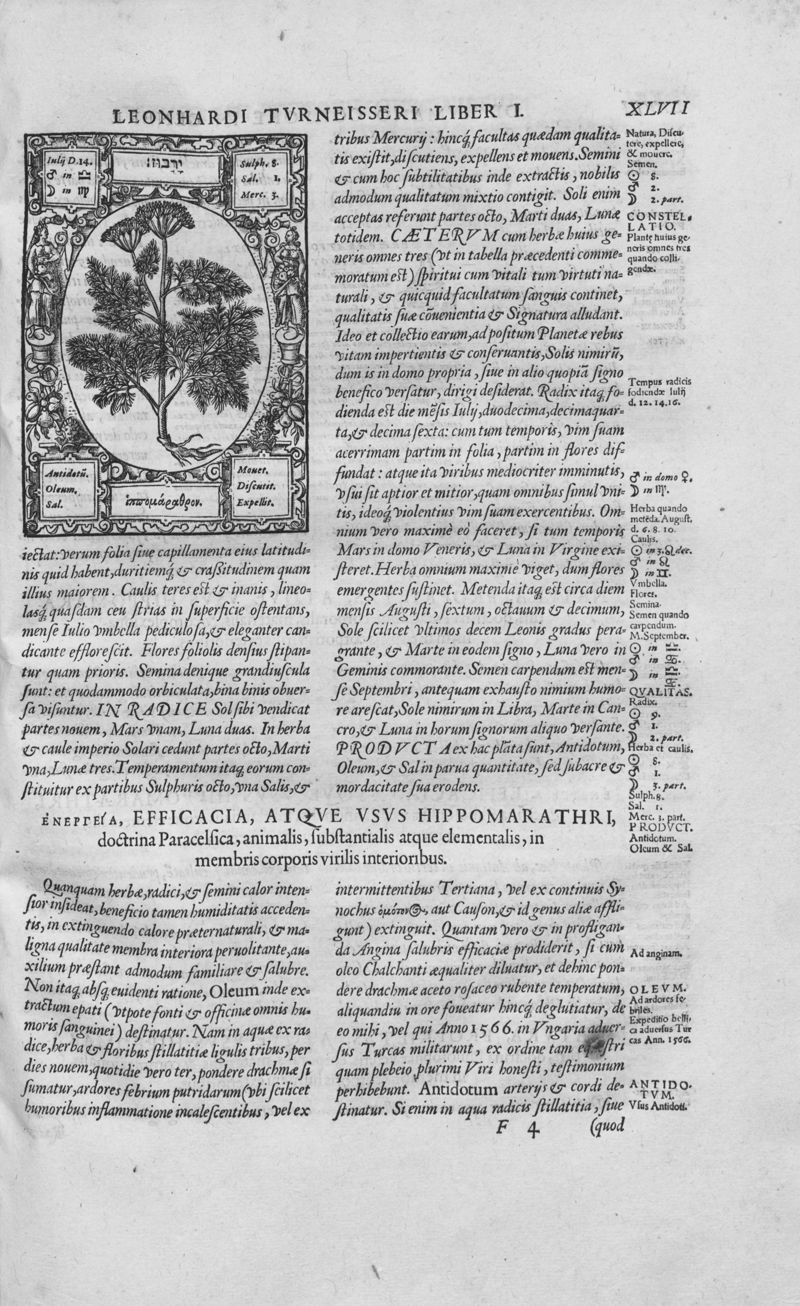 LEONHARDI TVRNEISSERI LIBER I.
XLVII
Iulij D. 14.
♂ in ♎
☽ in ♍
Sulph. 8.
Sal. 1.
Merc. 3.
Antidotũ.
Oleum.
Sal.
ἱππομάραθρον.
Mouet.
Discutit.
Expellit.
iectat: verum folia siue capillamenta eius latitudi-
nis quid habent, duritiemq́ & crassitudinem quam
illius maiorem. Caulis teres est & inanis, lineo-
lasq́ quasdam ceu strias in superficie ostentans,
mense Iulio vmbella pediculosa, & eleganter can-
dicante efflorescit. Flores foliolis densius stipan-
tur quam prioris. Semina denique grandiuscula
sunt: et quodammodo orbiculata, bina binis obuer-
sa visuntur. IN RADICE Sol sibi vendicat
partes nouem, Mars vnam, Luna duas. In herba
& caule imperio Solari cedunt partes octo, Marti
vna, Lunæ tres. Temperamentum itaq́ eorum con-
stituitur ex partibus Sulphuris octo, vna Salis, &
tribus Mercurij: hincq́ facultas quædam qualita-
tis existit, discutiens, expellens et mouens. Semini
& cum hoc subtilitatibus inde extractis, nobilis
admodum qualitatum mixtio contigit. Soli enim
acceptas referunt partes octo, Marti duas, Lunæ
totidem. CÆTERVM cum herbæ huius ge-
neris omnes tres (vt in tabella præcedenti comme-
moratum est) spiritui cum vitali tum virtuti na-
turali, & quicquid facultatum sanguis continet,
qualitatis suæ cõuenientia & Signatura alludant.
Ideo et collectio earum, ad positum Planetæ rebus
vitam impertientis & conseruantis, Solis nimirũ,
dum is in domo propria, siue in alio quopiã signo
benefico versatur, dirigi desiderat. Radix itaq́ fo-
dienda est die mẽsis Iulij, duodecima, decimaquar-
ta, & decima sexta: cum tum temporis, vim suam
acerrimam partim in folia, partim in flores dif-
fundat: atque ita viribus mediocriter imminutis,
vsui sit aptior et mitior, quam omnibus simul vni-
tis, ideoq́ violentius vim suam exercentibus. Om-
nium vero maximè eò faceret, si tum temporis
Mars in domo Veneris, & Luna in Virgine exi-
steret. Herba omnium maxime viget, dum flores
emergentes sustinet. Metenda itaq́ est circa diem
mensis Augusti, sextum, octauum & decimum,
Sole scilicet vltimos decem Leonis gradus pera-
grante, & Marte in eodem signo, Luna vero in
Geminis commorante. Semen carpendum est men-
se Septembri, antequam exhausto nimium humo-
re arescat, Sole nimirum in Libra, Marte in Can-
cro, & Luna in horum signorum aliquo versante.
PRODVCTA ex hac plãta sunt, Antidotum,
Oleum, & Sal in parua quantitate, sed subacre &
mordacitate sua erodens.
Natura, Discu-
tere, expellere,
& mouere.
Semen.
☉ 8.
♂ 2.
☽ 2. part.
CONSTEL-
LATIO.
Plantę huius ge-
neris omnes tres
quando colli-
gendæ.
Tempus radicis
fodiendæ Iulij
d. 12. 14. 16.
♂ in domo ♀,
☽ in ♍.
Herba quando
metẽda. August.
d. 6. 8. 10.
Caulis.
♂ in ♌
☽ in ♊.
Vmbella.
Floret.
Semina.
Semen quando
carpendum.
M. September.
☉ in ♎.
♂ in ♋.
☽ in ♎.
♋.
QVALITAS.
Radix.
☉ 9.
♂ 1.
☽ 2. part.
Herba et caulis.
☉ 8.
♂ 1.
☽ 3. part.
Sulph. 8.
Sal. 1.
Merc. 3. part.
PRODVCT.
Antidotum.
Oleum & Sal.
ἐνεργεία, EFFICACIA, ATQVE VSVS HIPPOMARATHRI,
doctrina Paracelsica, animalis, substantialis atque elementalis, in
membris corporis virilis interioribus.
Quanquam herbæ, radici, & semini calor inten-
sior insideat, beneficio tamen humiditatis acceden-
tis, in extinguendo calore præternaturali, & ma-
ligna qualitate membra interiora peruolitante, au-
xilium præstant admodum familiare & salubre.
Non itaq́ absq́ euidenti ratione, Oleum inde ex-
tractum epati (vtpote fonti & officinæ omnis hu-
moris sanguinei) destinatur. Nam in aquæ ex ra-
dice, herba & floribus stillatitiæ ligulis tribus, per
dies nouem, quotidie vero ter, pondere drachmæ si
sumatur, ardores febrium putridarum (vbi scilicet
humoribus inflammatione incalescentibus, vel ex
intermittentibus Tertiana, vel ex continuis Sy-
nochus aut Causon, & id genus aliæ affli-
gunt) extinguit. Quantam vero & in profligan-
da Angina salubris efficaciæ prodiderit, si cum
oleo Chalchanti æqualiter diluatur, et dehinc pon-
dere drachmæ aceto rosaceo rubente temperatum,
aliquandiu in ore foueatur hincq́ deglutiatur, de
eo mihi, vel qui Anno 1566. in Vngaria aduer-
sus Turcas militarunt, ex ordine tam equestri
quam plebeio plurimi Viri honesti, testimonium
perhibebunt. Antidotum arterijs & cordi de-
stinatur. Si enim in aqua radicis stillatitia, siue
Ad anginam.
OLEVM.
Ad ardores fe-
briles.
Expeditio belli-
ca aduersus Tur
cas Ann. 1566.
ANTIDO-
TVM.
Vsus Antidoti.
F 4
(quod